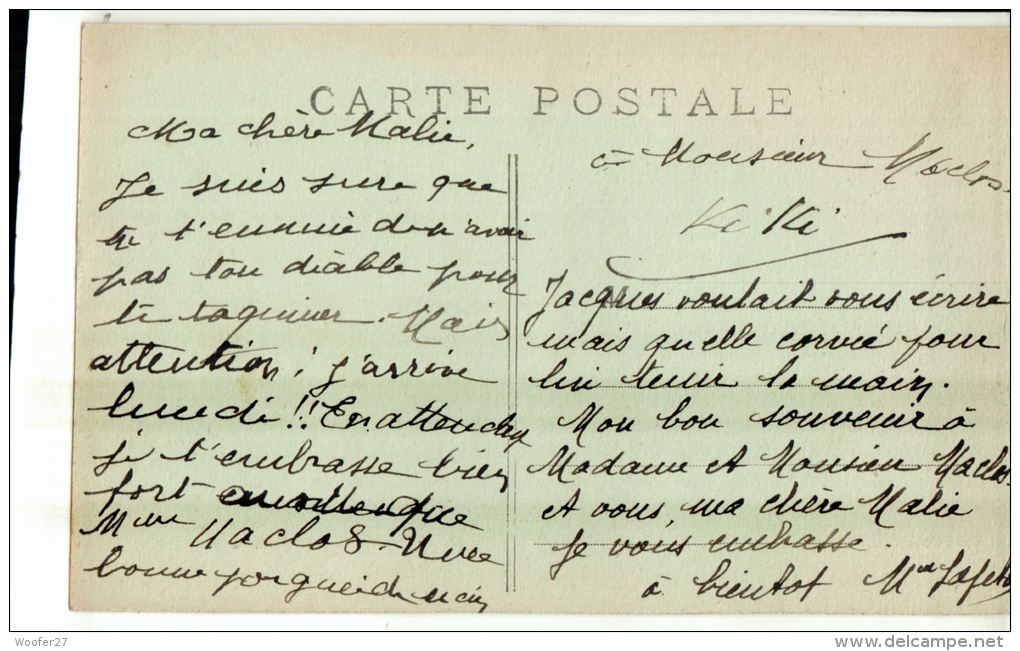 CARTE POSTALE
Ma chère Malie,
Je suis sure que
tu t'ennuie de n'avoir
pas ton diable pour
te taquiner. Mais
attention! j'arrive
lundi!! En attendant
je t'embrasse bien
fort que
Mme Maclos. Une
bonne
à Monsieur Maclos
KiKi
Jacques voulait vous écrire
mais quelle corvée pour
lui tenir la main.
Mon bon souvenir à
Madame et Monsieur Maclos
et vous, ma chère Malie
je vous embrasse.
à bientot Mme
Woofer27
www.delcampe.net